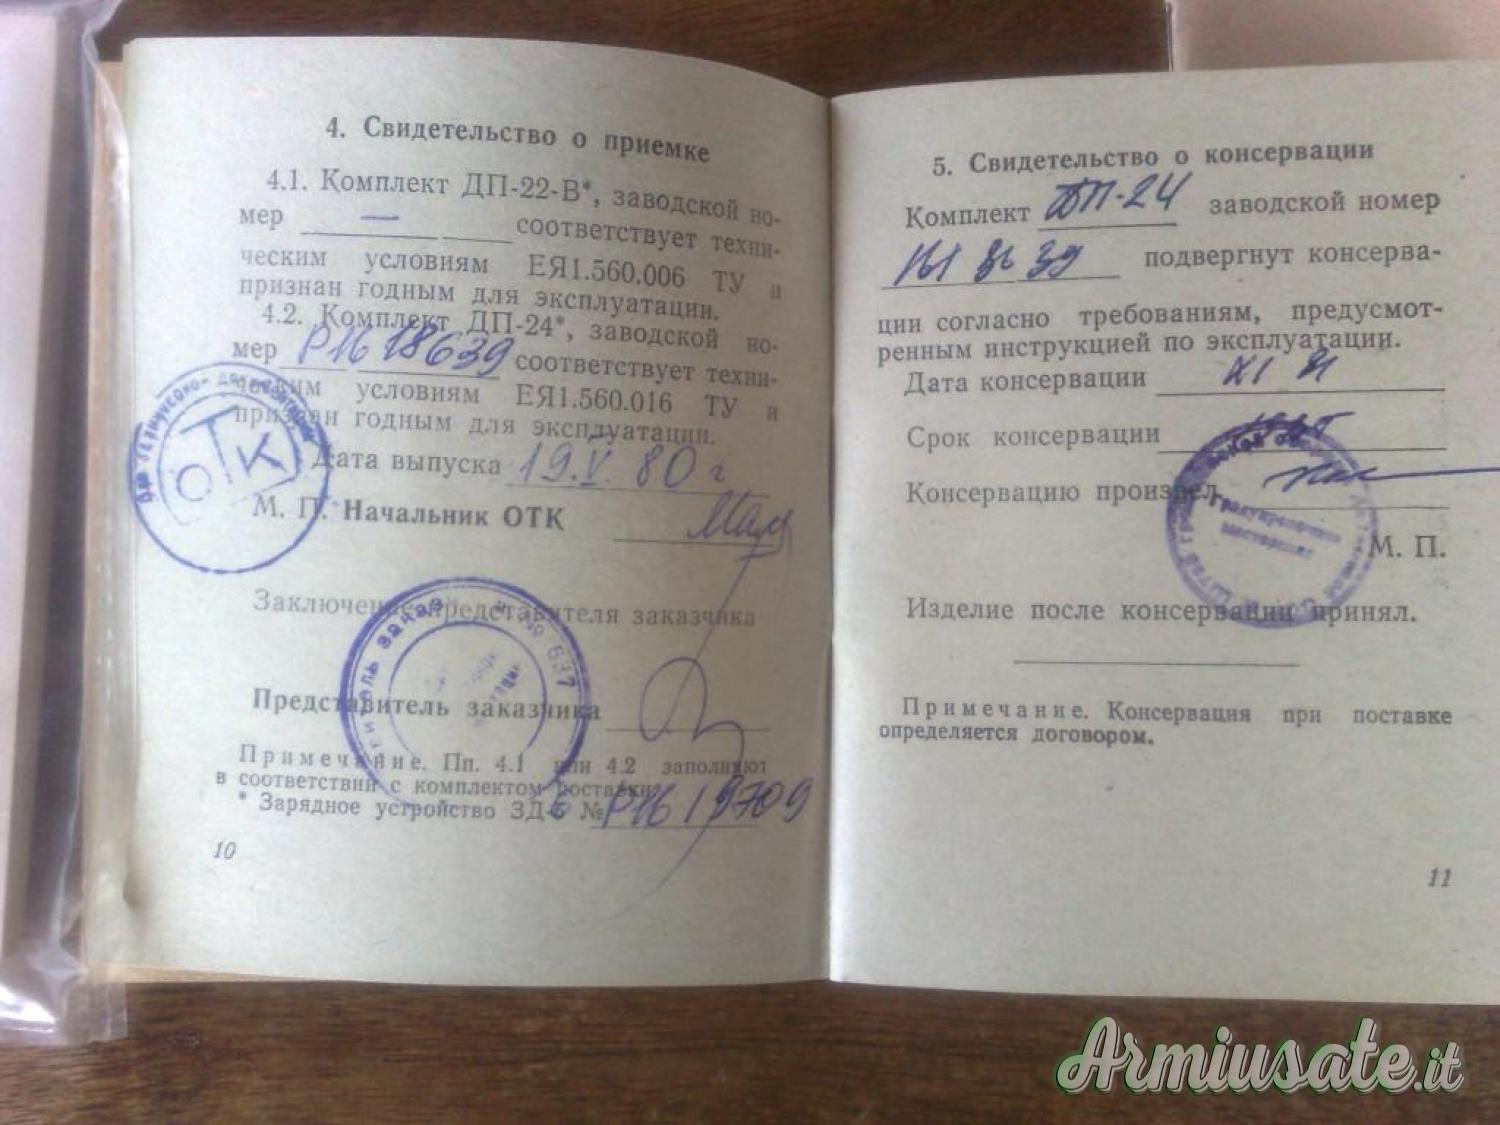 4. Свидетельство о приемке
4.1. Комплект ДП-22-В*, заводской но-
мер — соответствует техни-
ческим условиям ЕЯ1.560.006 ТУ и
признан годным для эксплуатации.
4.2. Комплект ДП-24*, заводской но-
мер Р1618639 соответствует техни-
ческим условиям ЕЯ1.560.016 ТУ и
признан годным для эксплуатации.
Дата выпуска 19.V.80 г
М. П. Начальник ОТК
Заключение представителя заказчика
Представитель заказчика
Примечание. Пп. 4.1 или 4.2 заполняют
в соответствии с комплектом поставки.
* Зарядное устройство ЗД-6 № Р1619709
10
ОТК
Для технической документации
637
5. Свидетельство о консервации
Комплект ДП-24 заводской номер
подвергнут консерва-
ции согласно требованиям, предусмот-
ренным инструкцией по эксплуатации.
Дата консервации XI 81
Срок консервации
Консервацию произвел
М. П.
Изделие после консервации принял.
Примечание. Консервация при поставке
определяется договором.
11
Armiusate.it